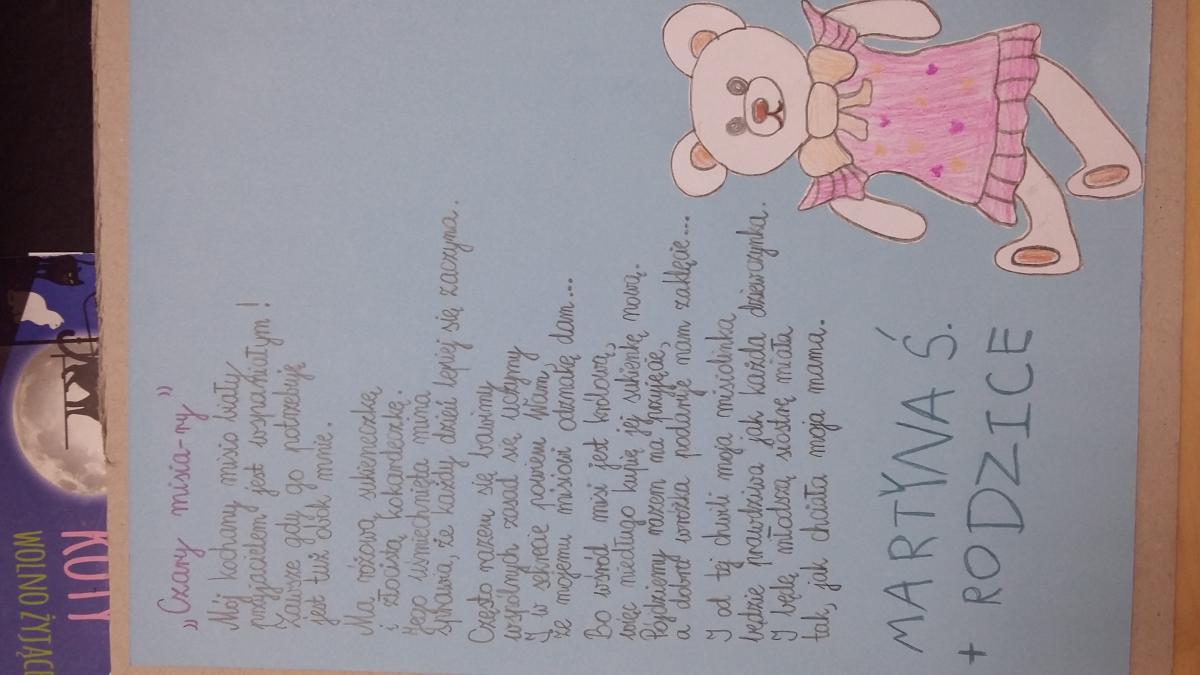 „Czary misia-ry”
Mój kochany misio biały
przyjacielem jest wspaniałym!
Zawsze gdy go potrzebuję
jest tuż obok mnie.
Ma różową sukieneczkę
i złocistą kokardeczkę.
Jego uśmiechnięta mina
sprawia, że każdy dzień lepiej się zaczyna.
Często razem się bawimy
wspólnych zasad się uczymy
I w sekrecie powiem Wam,
że mojemu misiowi odznakę dam...
Bo wśród misi jest królową,
więc niedługo kupię jej sukienkę nową.
Pójdziemy razem na przyjęcie,
a dobra wróżka podaruje nam zaklęcie...
I od tej chwili moja misiolinka
będzie prawdziwa jak każda dziewczynka.
I będę młodszą siostrę miała
tak, jak chciała moja mama.
MARTYNA Ś.
+ RODZICE
KOTY
WOLNO ŻYJĄCE